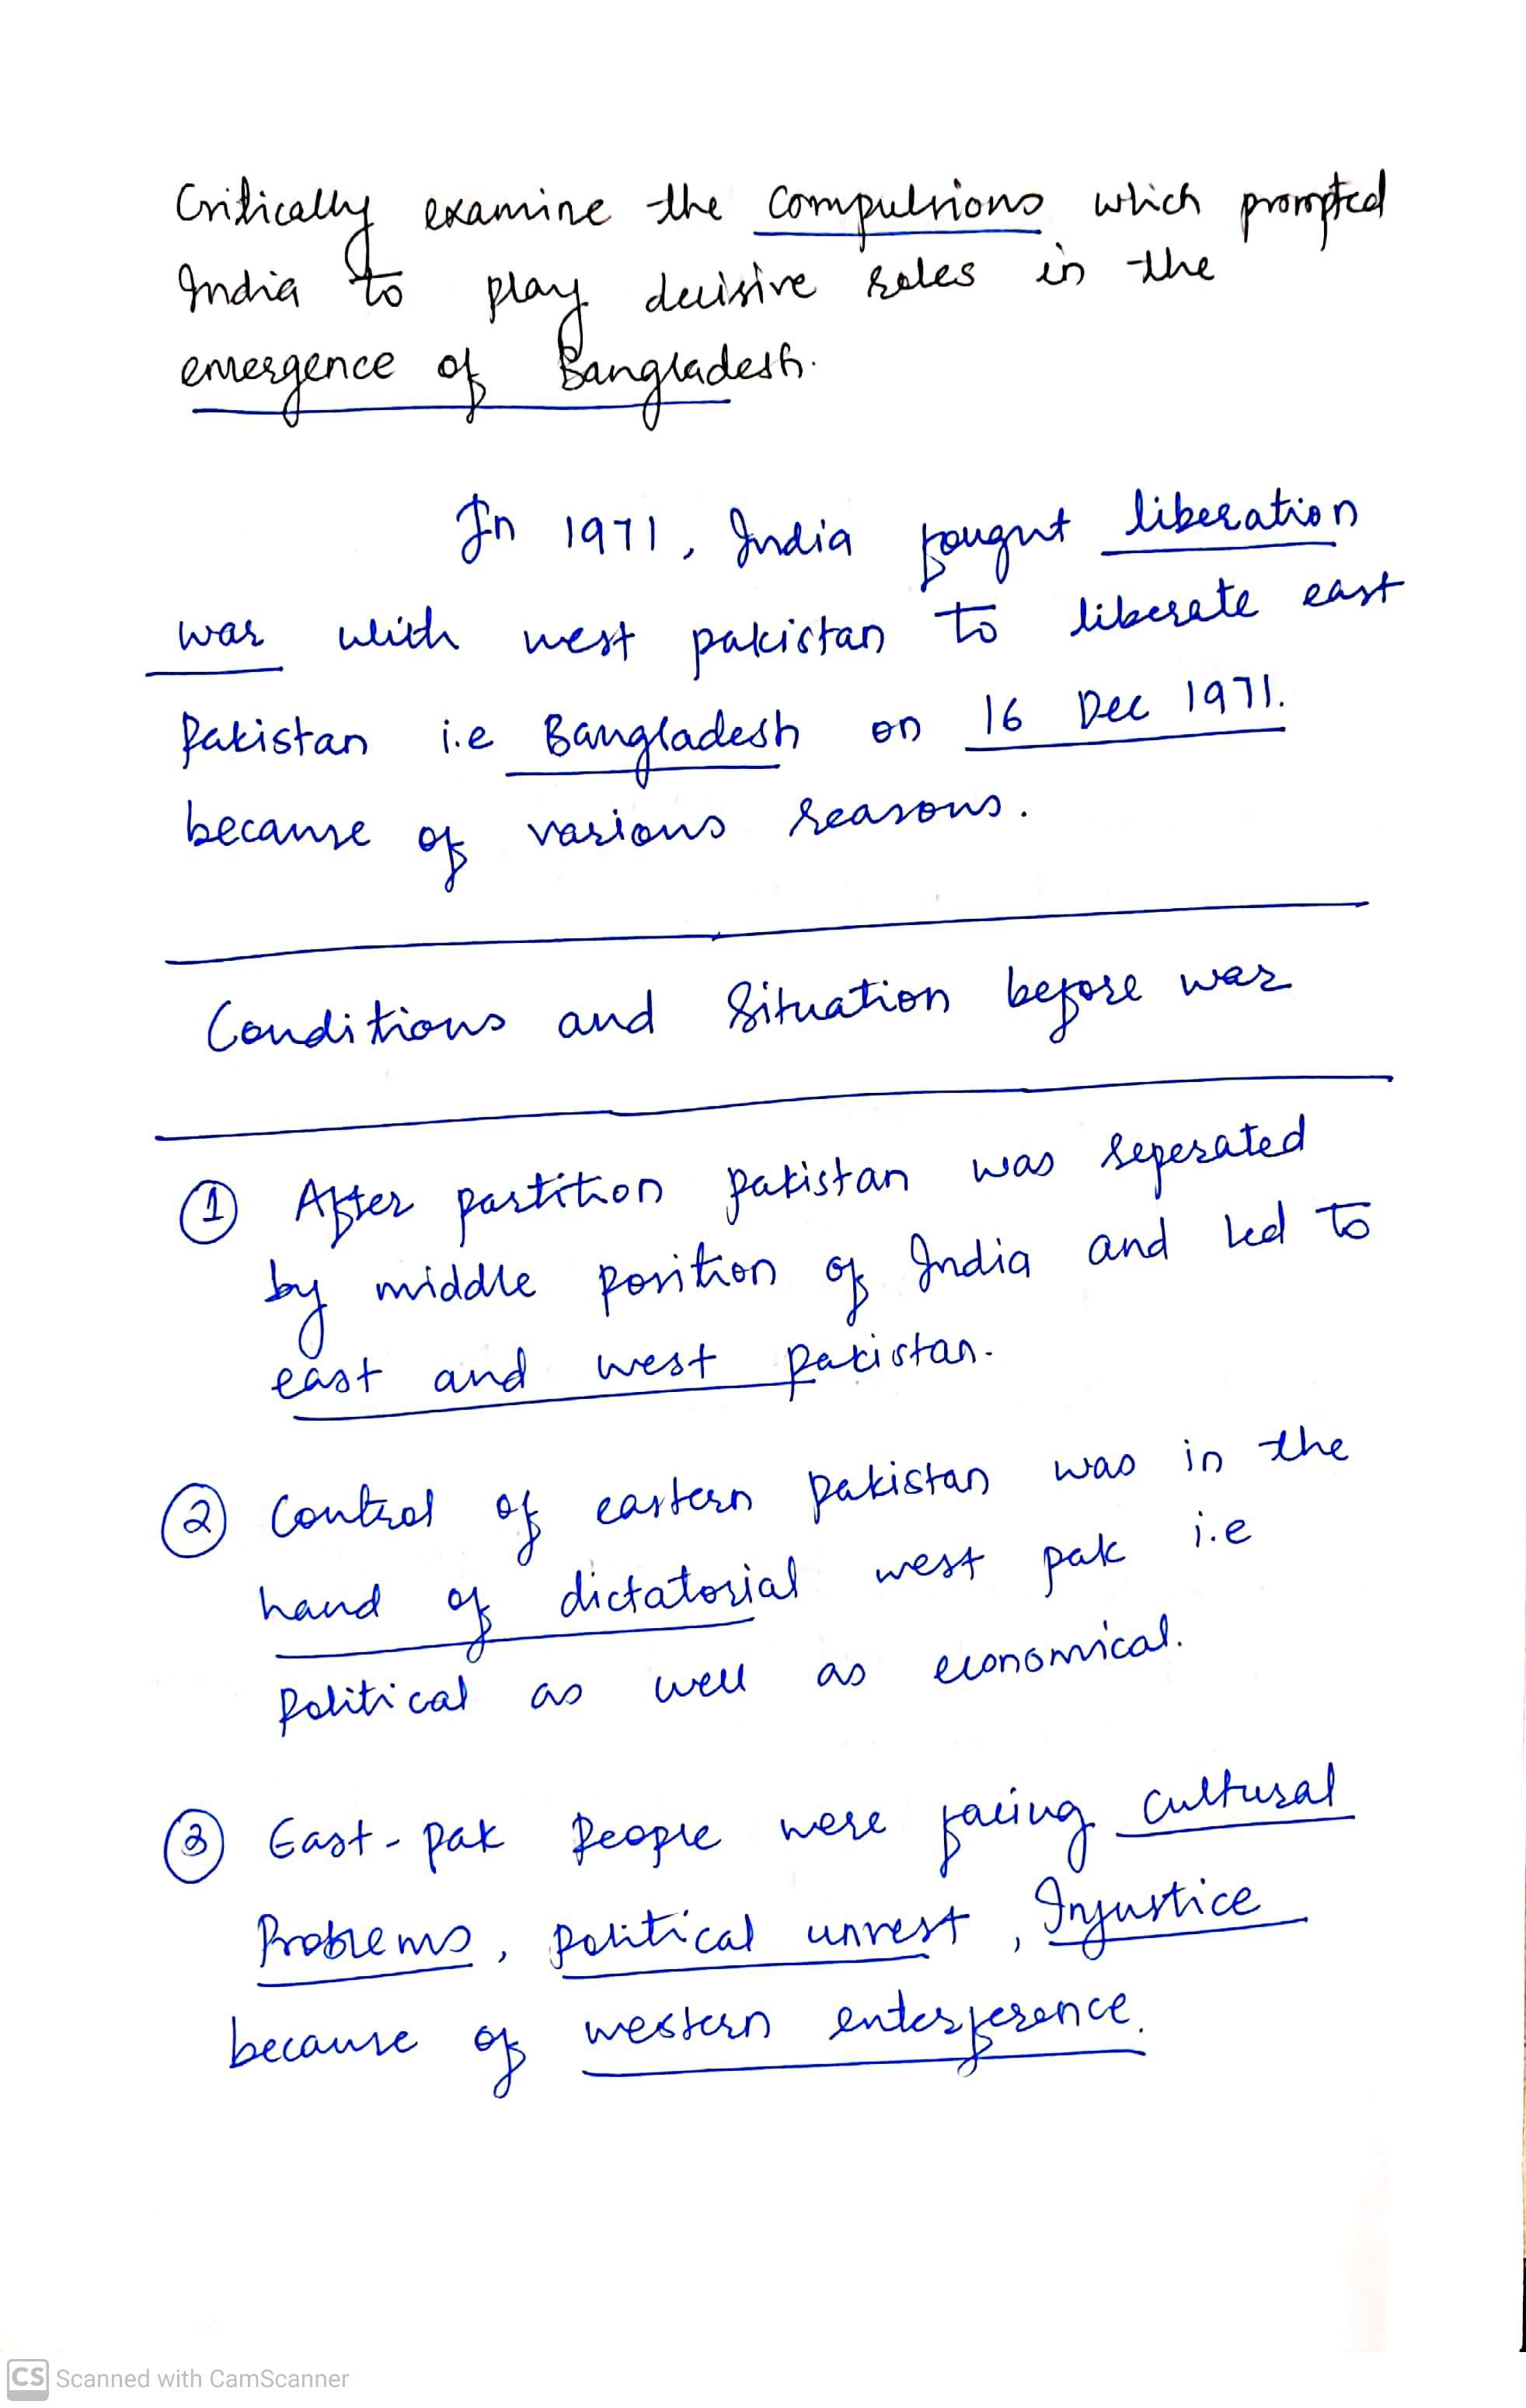 Critically examine the compulsions which prompted
India to play decisive roles in the
emergence of Bangladesh.
In 1971, India fought liberation
war with west pakistan to liberate east
Pakistan i.e Bangladesh on 16 Dec 1971.
because of various reasons.
Conditions and Situation before war
① After partition pakistan was seperated
by middle position of India and led to
east and west pakistan.
② Control of eastern pakistan was in the
hand of dictatorial west pak i.e
Political as well as economical.
③ East-pak People were facing cultural
Problems, political unrest, Injustice
because of western enterference.
CS Scanned with CamScanner